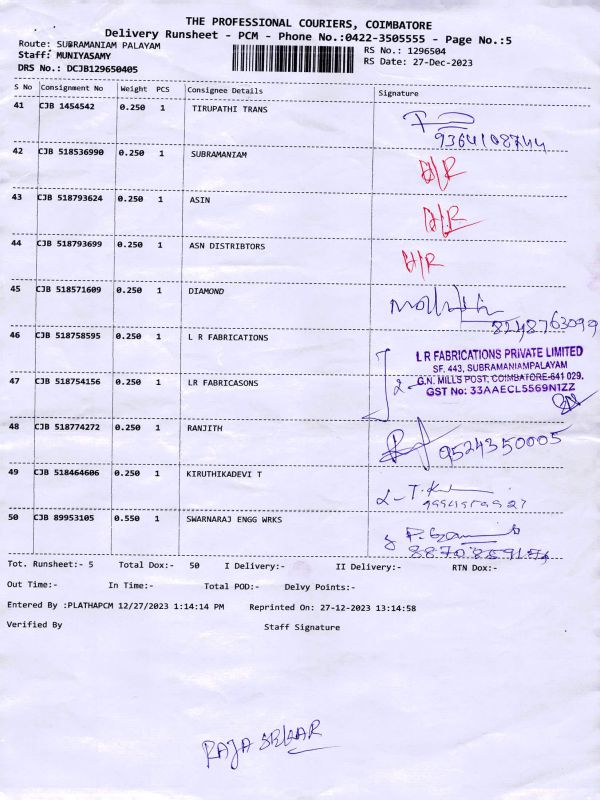 THE PROFESSIONAL COURIERS, COIMBATORE
Delivery Runsheet - PCM - Phone No.:0422-3505555 - Page No.:5
Route: SUBRAMANIAM PALAYAM
RS No.: 1296504
Staff: MUNIYASAMY
RS Date: 27-Dec-2023
DRS No.: DCJB129650405
S No Consignment No Weight PCS Consignee Details Signature
41 CJB 1454542 0.250 1 TIRUPATHI TRANS
9364108744
42 CJB 518536990 0.250 1 SUBRAMANIAM
43 CJB 518793624 0.250 1 ASIN
44 CJB 518793699 0.250 1 ASN DISTRIBTORS
45 CJB 518571609 0.250 1 DIAMOND
8248763099
46 CJB 518758595 0.250 1 L R FABRICATIONS
L R FABRICATIONS PRIVATE LIMITED
SF. 443, SUBRAMANIAMPALAYAM
47 CJB 518754156 0.250 1 LR FABRICASONS
G.N. MILLS POST, COIMBATORE-641 029.
GST No: 33AAECL5569N1ZZ
48 CJB 518774272 0.250 1 RANJITH
9524350005
49 CJB 518464606 0.250 1 KIRUTHIKADEVI T
50 CJB 89953105 0.550 1 SWARNARAJ ENGG WRKS
Tot. Runsheet:- 5 Total Dox:- 50 I Delivery:- II Delivery:- RTN Dox:-
Out Time:- In Time:- Total POD:- Delvy Points:-
Entered By :PLATHAPCM 12/27/2023 1:14:14 PM Reprinted On: 27-12-2023 13:14:58
Verified By Staff Signature
RAJA SEKAR